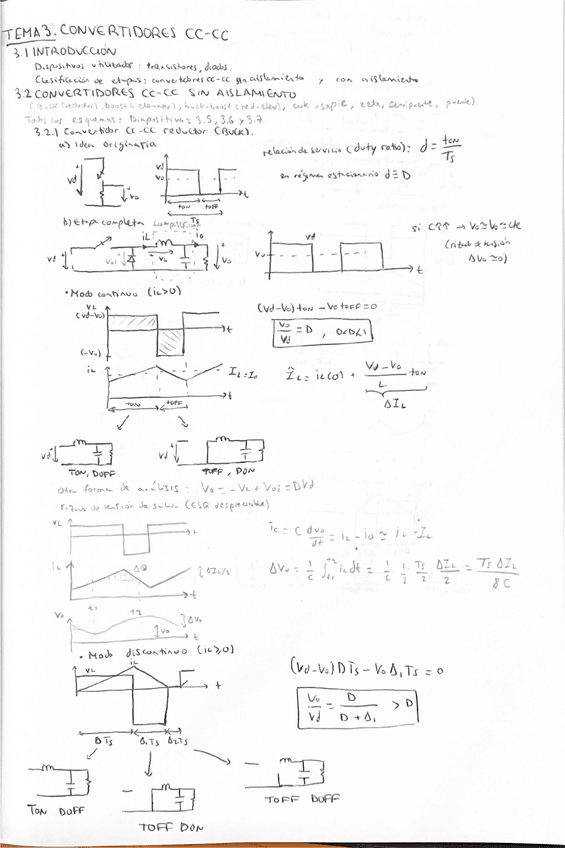 TEMA 3. CONVERTIDORES CC-CC
3.1 INTRODUCCIÓN
Dispositivos utilizados: transistores, diodos.
Clasificación de etapas: convertidores cc-cc sin aislamiento y con aislamiento
3.2 CONVERTIDORES CC-CC SIN AISLAMIENTO
(Buck (reductor), boost (elevador), buck-boost (red-elev), cuk, sepic, zeta, semipuente, puente).
Todos los esquemas: Diapositivas 3.5, 3.6 y 3.7
3.2.1 Convertidor CC-CC reductor (BUCK).
a) Idea originaria
relación de servicio (duty ratio): d = ton/Ts
en régimen estacionario d ≡ D
Vd
Vo
Vd
Vo
t
ton toff
Ts
b) Etapa completa
iL
io
Vd
Voi
VL
Vo
Vd
Vo
t
si C↑↑ → Vo≃Vo≃cte
(rizado de tensión
ΔVo≃0)
• Modo continuo (iL>0)
VL
(Vd-Vo)
t
(-Vo)
(Vd-Vo) ton - Vo toff = 0
Vo/Vd = D , 0<D<1
iL
IL=Io
t
ton toff
ÎL = iL(0) + (Vd-Vo)/L ton
ΔIL
Vd
TON, DOFF
Vd
TOFF, DON
Otra forma de análisis: Vo = -VL + Voi = DVd
Rizado de tensión de salida (ESR despreciable)
VL
t
ic = C dvo/dt = iL - io ≃ iL - IL
iL
ΔQ
ΔIL/2
t
t1 t2
ΔVo = 1/C ∫ ic dt = 1/C 1/2 Ts/2 ΔIL/2 = Ts ΔIL/8C
Vo
ΔVo
Vo
t
• Modo discontinuo (iL≥0)
VL
iL
t
DTs Δ1Ts Δ2Ts
(Vd-Vo) DTs - Vo Δ1Ts = 0
Vo/Vd = D/(D+Δ1) > D
TON DOFF
TOFF DON
TOFF DOFF